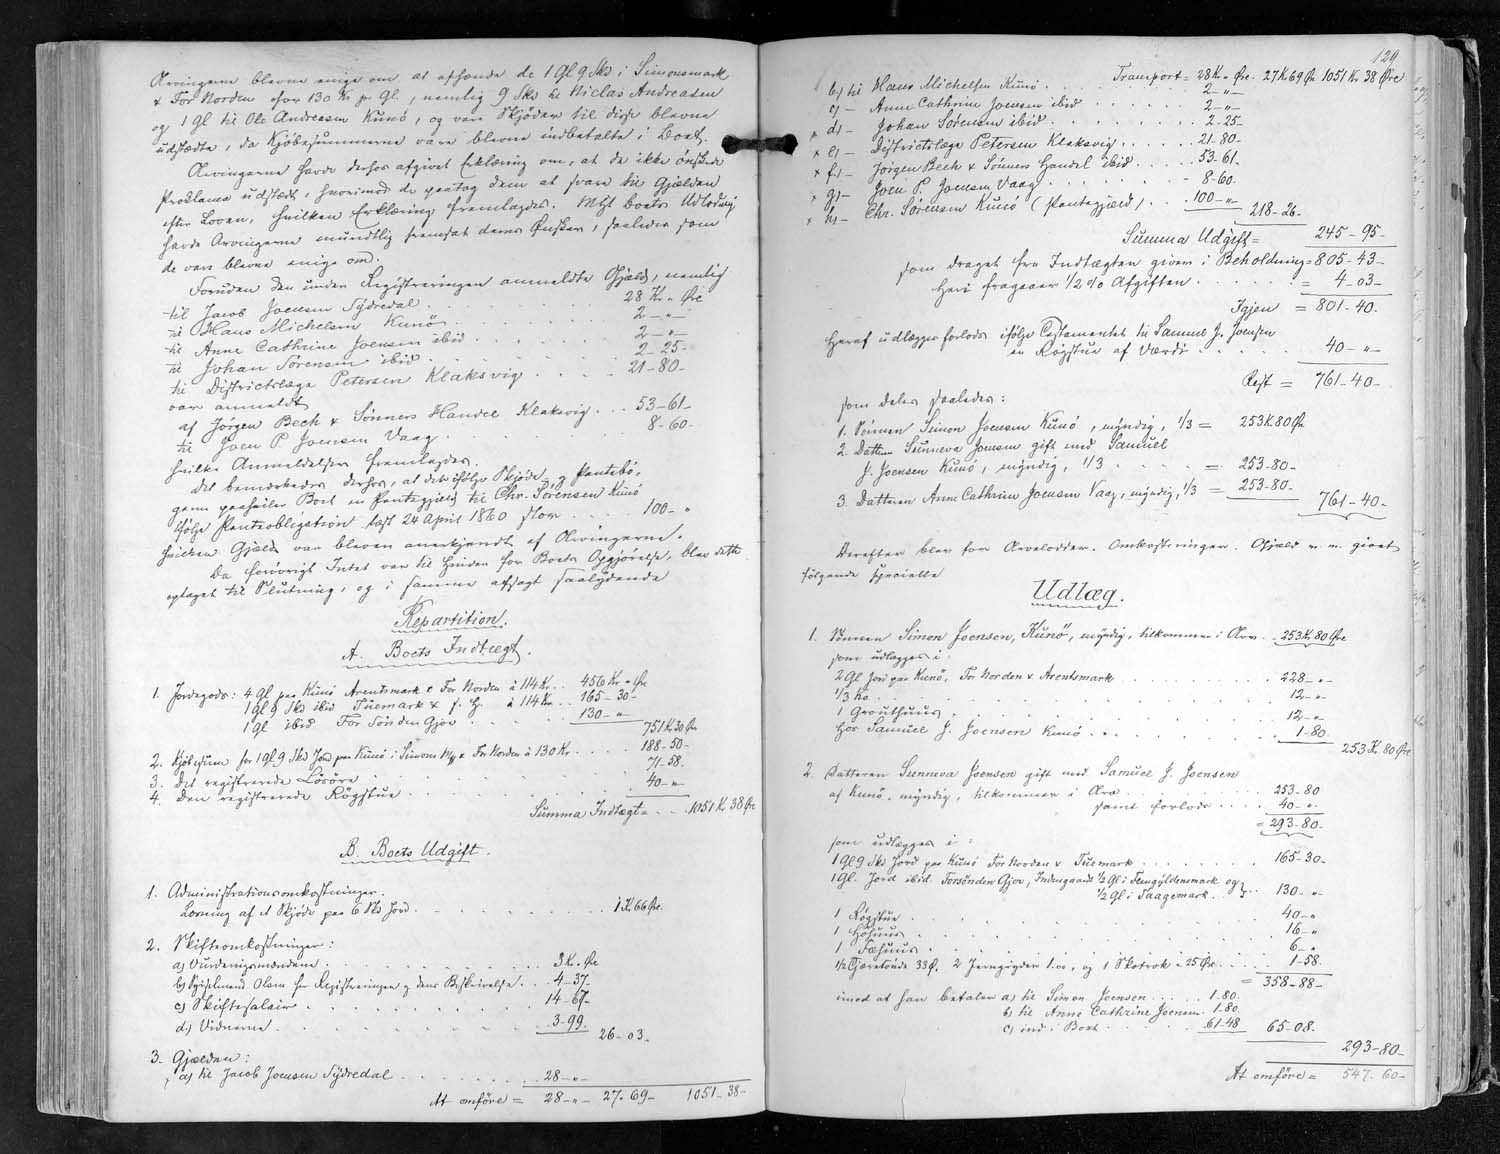 Arvingerne blevne enige om at afhænde de 1 Gl 9 Skd i Simonsmark
& For Norden efter 130 Kr pr Gl, nemlig 9 Skd til Niclas Andreasen
og 1 Gl til Ole Andreasen Kunö, og vare Skjöder til disse blevne
udstedte, da Kjöbesummerne vare blevne indbetalte i Boet.
Arvingerne havde derhos afgivet Erklæring om, at de ikke önskede
Proklama udstedt, hvorimod de paatog dem at svare til Gjælden
efter Loven, hvilken Erklæring fremlagdes. Mht Boets Udlodning
havde Arvingerne mundtlig fremsat deres Önsker, saaledes som
de vare blevne enige om.
Foruden den under Registreringen anmeldte Gjæld, nemlig
til Jacob Joensen Sydredal . 28 Kr " Øre
til Hans Michelsen Kunö . . . 2 — " —
til Anne Cathrine Joensen ibid . . . 2 — " —
til Johan Sörensen ibid . . . 2 — 25 —
til Districtslæge Petersen Klaksvig . . . 21 — 80 —
var anmeldt
af Jörgen Bech & Sönners Handel Klaksvig . . . 53 — 61 —
til Joen P. Joensen Vaag . . . 8 — 60 —
hvilke Anmeldelser fremlagdes.
Det bemærkedes derhos, at der ifölge Skjöde og Pantebö-
gerne paahviler Boet en Pantegjæld til Chr. Sörensen Kunö
ifölge Panteobligation læst 24 April 1860 stor . . . 100 — "
hvilken Gjæld var bleven anerkjendt af Arvingerne.
Da forövrigt Intet var til Hinder for Boets Opgjörelse, blev dette
optaget til Slutning, og i samme afsagt saalydende
Repartition.
A. Boets Indtægt.
1. Jordegods: 4 Gl paa Kunö Arentsmark & For Norden à 114 Kr . . 456 Kr " Øre
1 Gl 9 Skd ibid Tuemark & f. H. à 114 Kr . . 165 — 30 —
1 Gl ibid For Sönden Gjov . . . 130 — " 751 Kr 30 Øre
2. Kjöbesum for 1 Gl 9 Skd Jord paa Kunö i Simons Mk & For Norden à 130 Kr . . . 188 — 50 —
3. Det registrerede Lösöre . . . 71 — 58 —
4. Den registrerede Rögstue . . . 40 — " —
Summa Indtægt = . . 1051 Kr 38 Øre
B. Boets Udgift.
1. Administrationsomkostninger.
Læsning af 1 Skjöde paa 6 Skd Jord . . . 1 Kr 66 Øre.
2. Skifteomkostninger:
a) Vurderingsmændene . . . 3 Kr " Øre
b) Olsen for Registreringer og dens Beskrivelse . . . 4 — 37 —
c) Skiftesalair . . . 14 — 67 —
d) Vidnerne . . . 3 — 99. 26 — 03 —
3. Gjælden:
a) til Jacob Joensen Sydredal . . . 28 — " —
At omföre = 28 — " — 27 — 69 — 1051 — 38 —
129
Transport = 28 Kr " Øre. 27 Kr 69 Øre 1051 Kr 38 Øre
b) til Hans Michelsen Kunö . . . 2 — " —
c) — Anne Cathrine Joensen ibid . . . 2 — " —
x d) — Johan Sörensen ibid . . . 2 — 25
x e) — Districtslæge Petersen Klaksvig . . . 21 — 80 —
x f) — Jörgen Bech & Sönners Handel ibid . . . 53 — 61.
x g) — Joen P. Joensen Vaag . . . 8 — 60.
x h) — Chr. Sörensen Kunö (Pantegjæld) . . . 100 — " — 218 — 26.
Summa Udgift = 245 — 95 —
som draget fra Indtægten giver i Beholdning = 805 — 43 —
Heri fragaaer 1/2 % Afgiften . . . = 4 — 03 —
Igjen = 801 — 40.
Heraf udlægges forlods ifölge Testamentet til Samuel J. Joensen
en Rögstue af Værdi . . . 40 — " —
Rest = 761 — 40 —
som deles saaledes:
1. Sönnen Simon Joensen Kunö, myndig, 1/3 = 253 Kr 80 Øre
2. Datteren Sunneva Joensen gift med Samuel
J. Joensen Kunö, myndig, 1/3 . . . = 253 — 80 —
3. Datteren Anne Cathrine Joensen Vaag, myndig, 1/3 = 253 — 80 — 761 — 40 —
Derefter blev for Arvelodder, Omkostninger, Gjæld m. m. gjort
fölgende specielle
Udlæg.
1. Sönnen Simon Joensen, Kunö, myndig, tilkommer i Arv . . 253 Kr 80 Øre
som udlægges i:
2 Gl Jord paa Kunö, For Norden & Arentsmark . . . 228 — " —
1/3 Ko . . . 12 — " —
1 Grouthuus . . . 12 — " —
Hos Samuel J. Joensen Kunö . . . 1 — 80. 253 Kr 80 Øre
2. Datteren Sunneva Joensen gift med Samuel J. Joensen
af Kunö, myndig, tilkommer i Arv . . . 253 — 80
samt forlods . . . 40 — " —
= 293 — 80 —
som udlægges i:
1 Gl 9 Skd Jord paa Kunö For Norden & Tuemark . . . 165 — 30 —
1 Gl. Jord ibid. Forsönden Gjov, Indengaards 1/2 Gl i Femgyldensmark og
1/2 Gl i Taagemark . . 130 — " —
1 Rögstue . . . 40 — "
1 Höhuus . . . 16 — "
1 Fæhuus . . . 6 — "
1/2 Tjæretönde 33 Ø. 2 Jerngryder 1.00, og 1 Skotrok — 25 Øre . . . 1 — 58
= 358 — 88 —
imod at han betaler a) til Simon Joensen . . . 1 — 80.
b) til Anne Cathrine Joensen 1. 80.
c) ind i Boet . . . 61 — 48 65 — 08 —
293 — 80 —
At omföre = 547 — 60 —